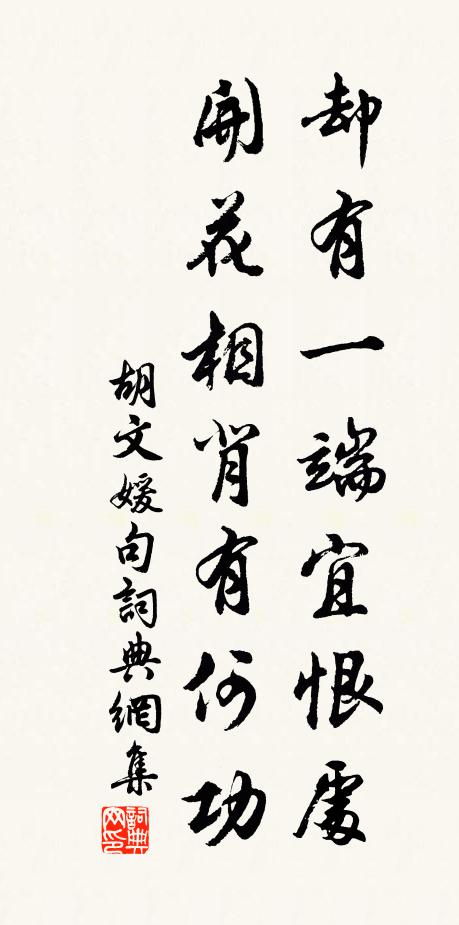 却有一端宜恨處
開花相背有何功
胡文媛句詞典網集
詞典网印